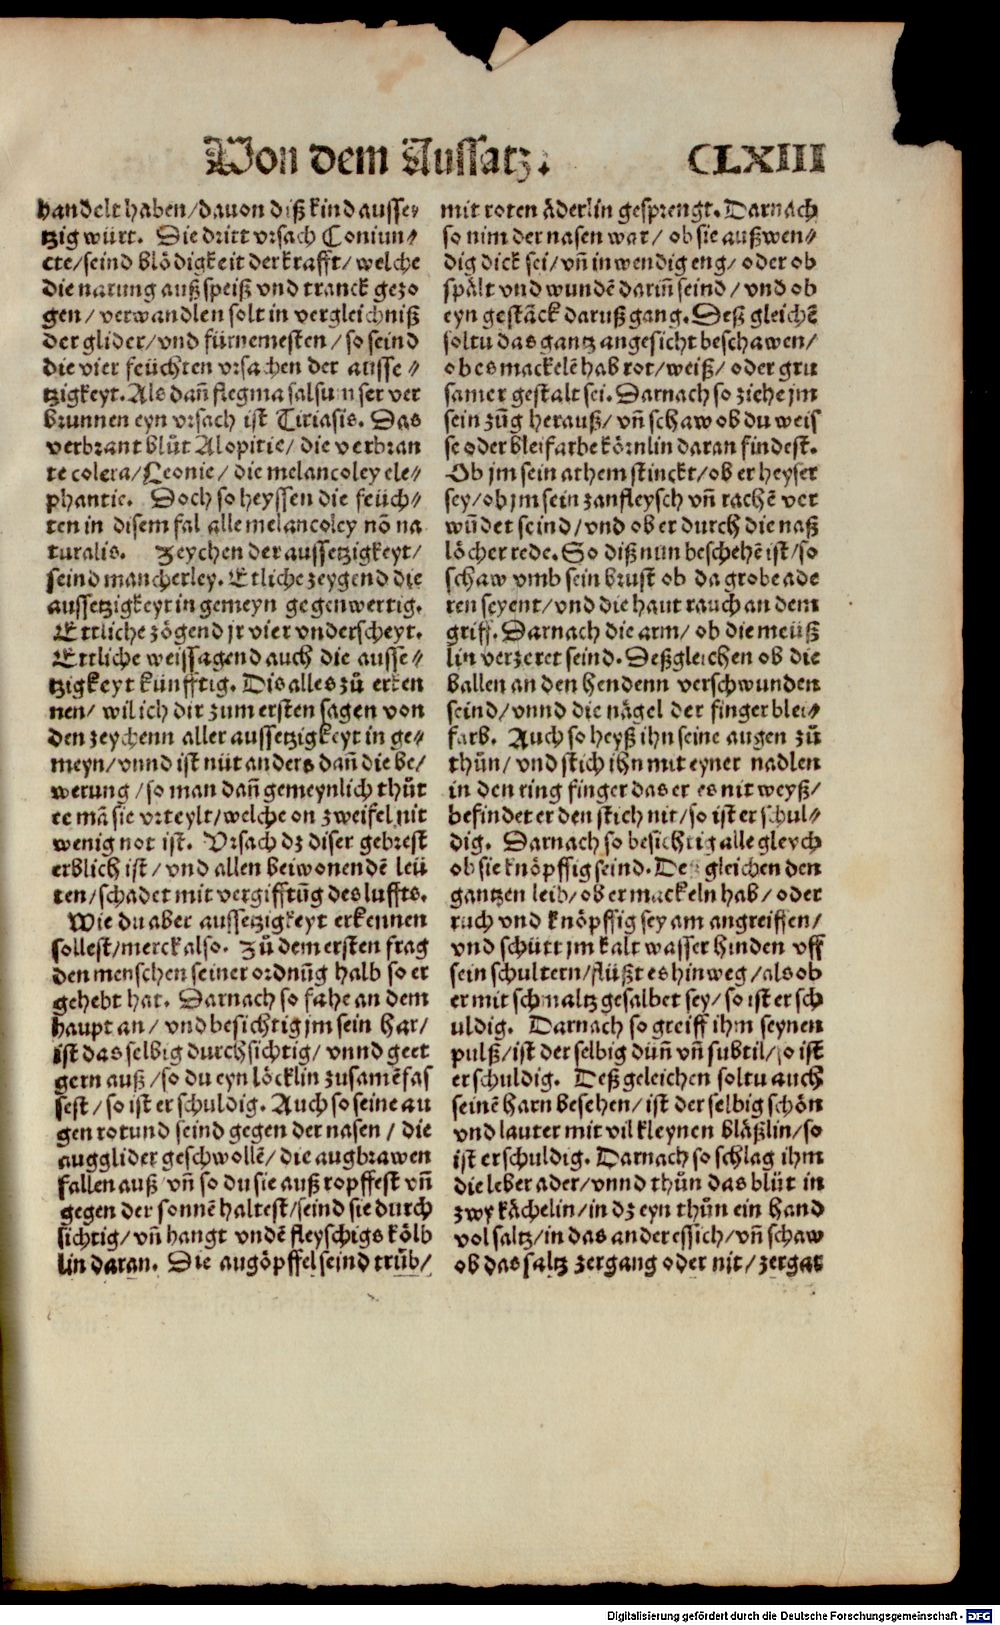 Von dem Aussatz.
CLXIII
handelt haben/dauon diß kind ausse⸗
tzig würt. Die dritt vrsach Coniun⸗
cte/seind blödigkeit der krafft/welche
die narung auß speiß vnd tranck gezo
gen/verwandlen solt in vergleichniß
der glider/vnd fürnemesten/so seind
die vier feüchten vrsachen der ausse⸗
tzigkeyt. Als dañ flegma salsum ser ver
brunnen eyn vrsach ist Tiriasis. Das
verbrant blůt Alopitie/die verbran
te colera/Leonie/die melancoley ele⸗
phantie. Doch so heyssen die feüch⸗
ten in disem fal alle melancoley nō na
turalis. Zeychen der aussetzigkeyt/
seind mancherley. Etliche zeygend die
aussetzigkeyt in gemeyn gegenwertig.
Ettliche zögend jr vier vnderscheyt.
Ettliche weissagend auch die ausse⸗
tzigkeyt künfftig. Dis alles zů erken
nen/wil ich dir zum ersten sagen von
den zeychenn aller aussetzigkeyt in ge⸗
meyn/vnnd ist nüt anders dañ die be/
werung/so man dañ gemeynlich thůt
te mā sie vrteylt/welche on zweifel nit
wenig not ist. Vrsach dz diser gebrest
erblich ist/vnd allen beiwonendē leü
ten/schadet mit vergifftũg des luffts.
Wie du aber aussetzigkeyt erkennen
sollest/merck also. Zů dem ersten frag
den menschen seiner ordnũg halb so er
gehebt hat. Darnach so fahe an dem
haupt an/vnd besichtig jm sein har/
ist das selbig durchsichtig/vnnd geet
gern auß/so du eyn löcklin zusamēfas
sest/so ist er schuldig. Auch so seine au
gen rotund seind gegen der nasen/die
augglider geschwollē/die augbrawen
fallen auß vñ so du sie auß ropffest vñ
gegen der sonnē haltest/seind sie durch
sichtig/vñ hangt vndē fleyschigs kölb
lin daran. Die augöpffel seind trüb/
mit roten äderlin gesprengt. Darnach
so nim der nasen war/ob sie außwen⸗
dig dick sei/vñ inwendig eng/oder ob
spält vnd wundē dariñ seind/vnd ob
eyn gestäck daruß gang. Deß gleichē
soltu das gantz angesicht beschawen/
ob es mackelē hab rot/weiß/oder gru
samer gestalt sei. Darnach so ziehe jm
sein zũg herauß/vñ schaw ob du weis
se oder bleifarbe körnlin daran findest.
Ob jm sein athem stinckt/ob er heyser
sey/ob jm sein zanfleysch vñ rachē ver
wũdet seind/vnd ob er durch die naß
löcher rede. So diß nun beschehē ist/so
schaw vmb sein brust ob da grobe ade
ren seyent/vnd die haut rauch an dem
griff. Darnach die arm/ob die meüß
lin verzeret seind. Deßgleichen ob die
ballen an den hendenn verschwunden
seind/vnnd die nägel der finger blei⸗
farb. Auch so heyß ihn seine augen zů
thůn/vnd stich ihn mit eyner nadlen
in den ring finger das er es nit weyß/
befindet er den stich nit/so ist er schul⸗
dig. Darnach so besichtig alle gleych
ob sie knöpffig seind. Deß gleichen den
gantzen leib/ob er mackeln hab/oder
ruch vnd knöpffig sey am angreiffen/
vnd schütt jm kalt wasser hinden vff
sein schultern/flüßt es hinweg/als ob
er mit schmaltz gesalbet sey/so ist er sch
uldig. Darnach so greiff ihm seynen
pulß/ist der selbig düñ vñ subtil/so ist
er schuldig. Deß geleichen soltu auch
seinē harn besehen/ist der selbig schön
vnd lauter mit vil kleynen bläßlin/so
ist er schuldig. Darnach so schlag ihm
die leber ader/vnnd thůn das blüt in
zwy kächelin/in dz eyn thůn ein hand
vol saltz/in das ander essich/vñ schaw
ob das saltz zergang oder nit/zergat
Digitalisierung gefördert durch die Deutsche Forschungsgemeinschaft - DFG